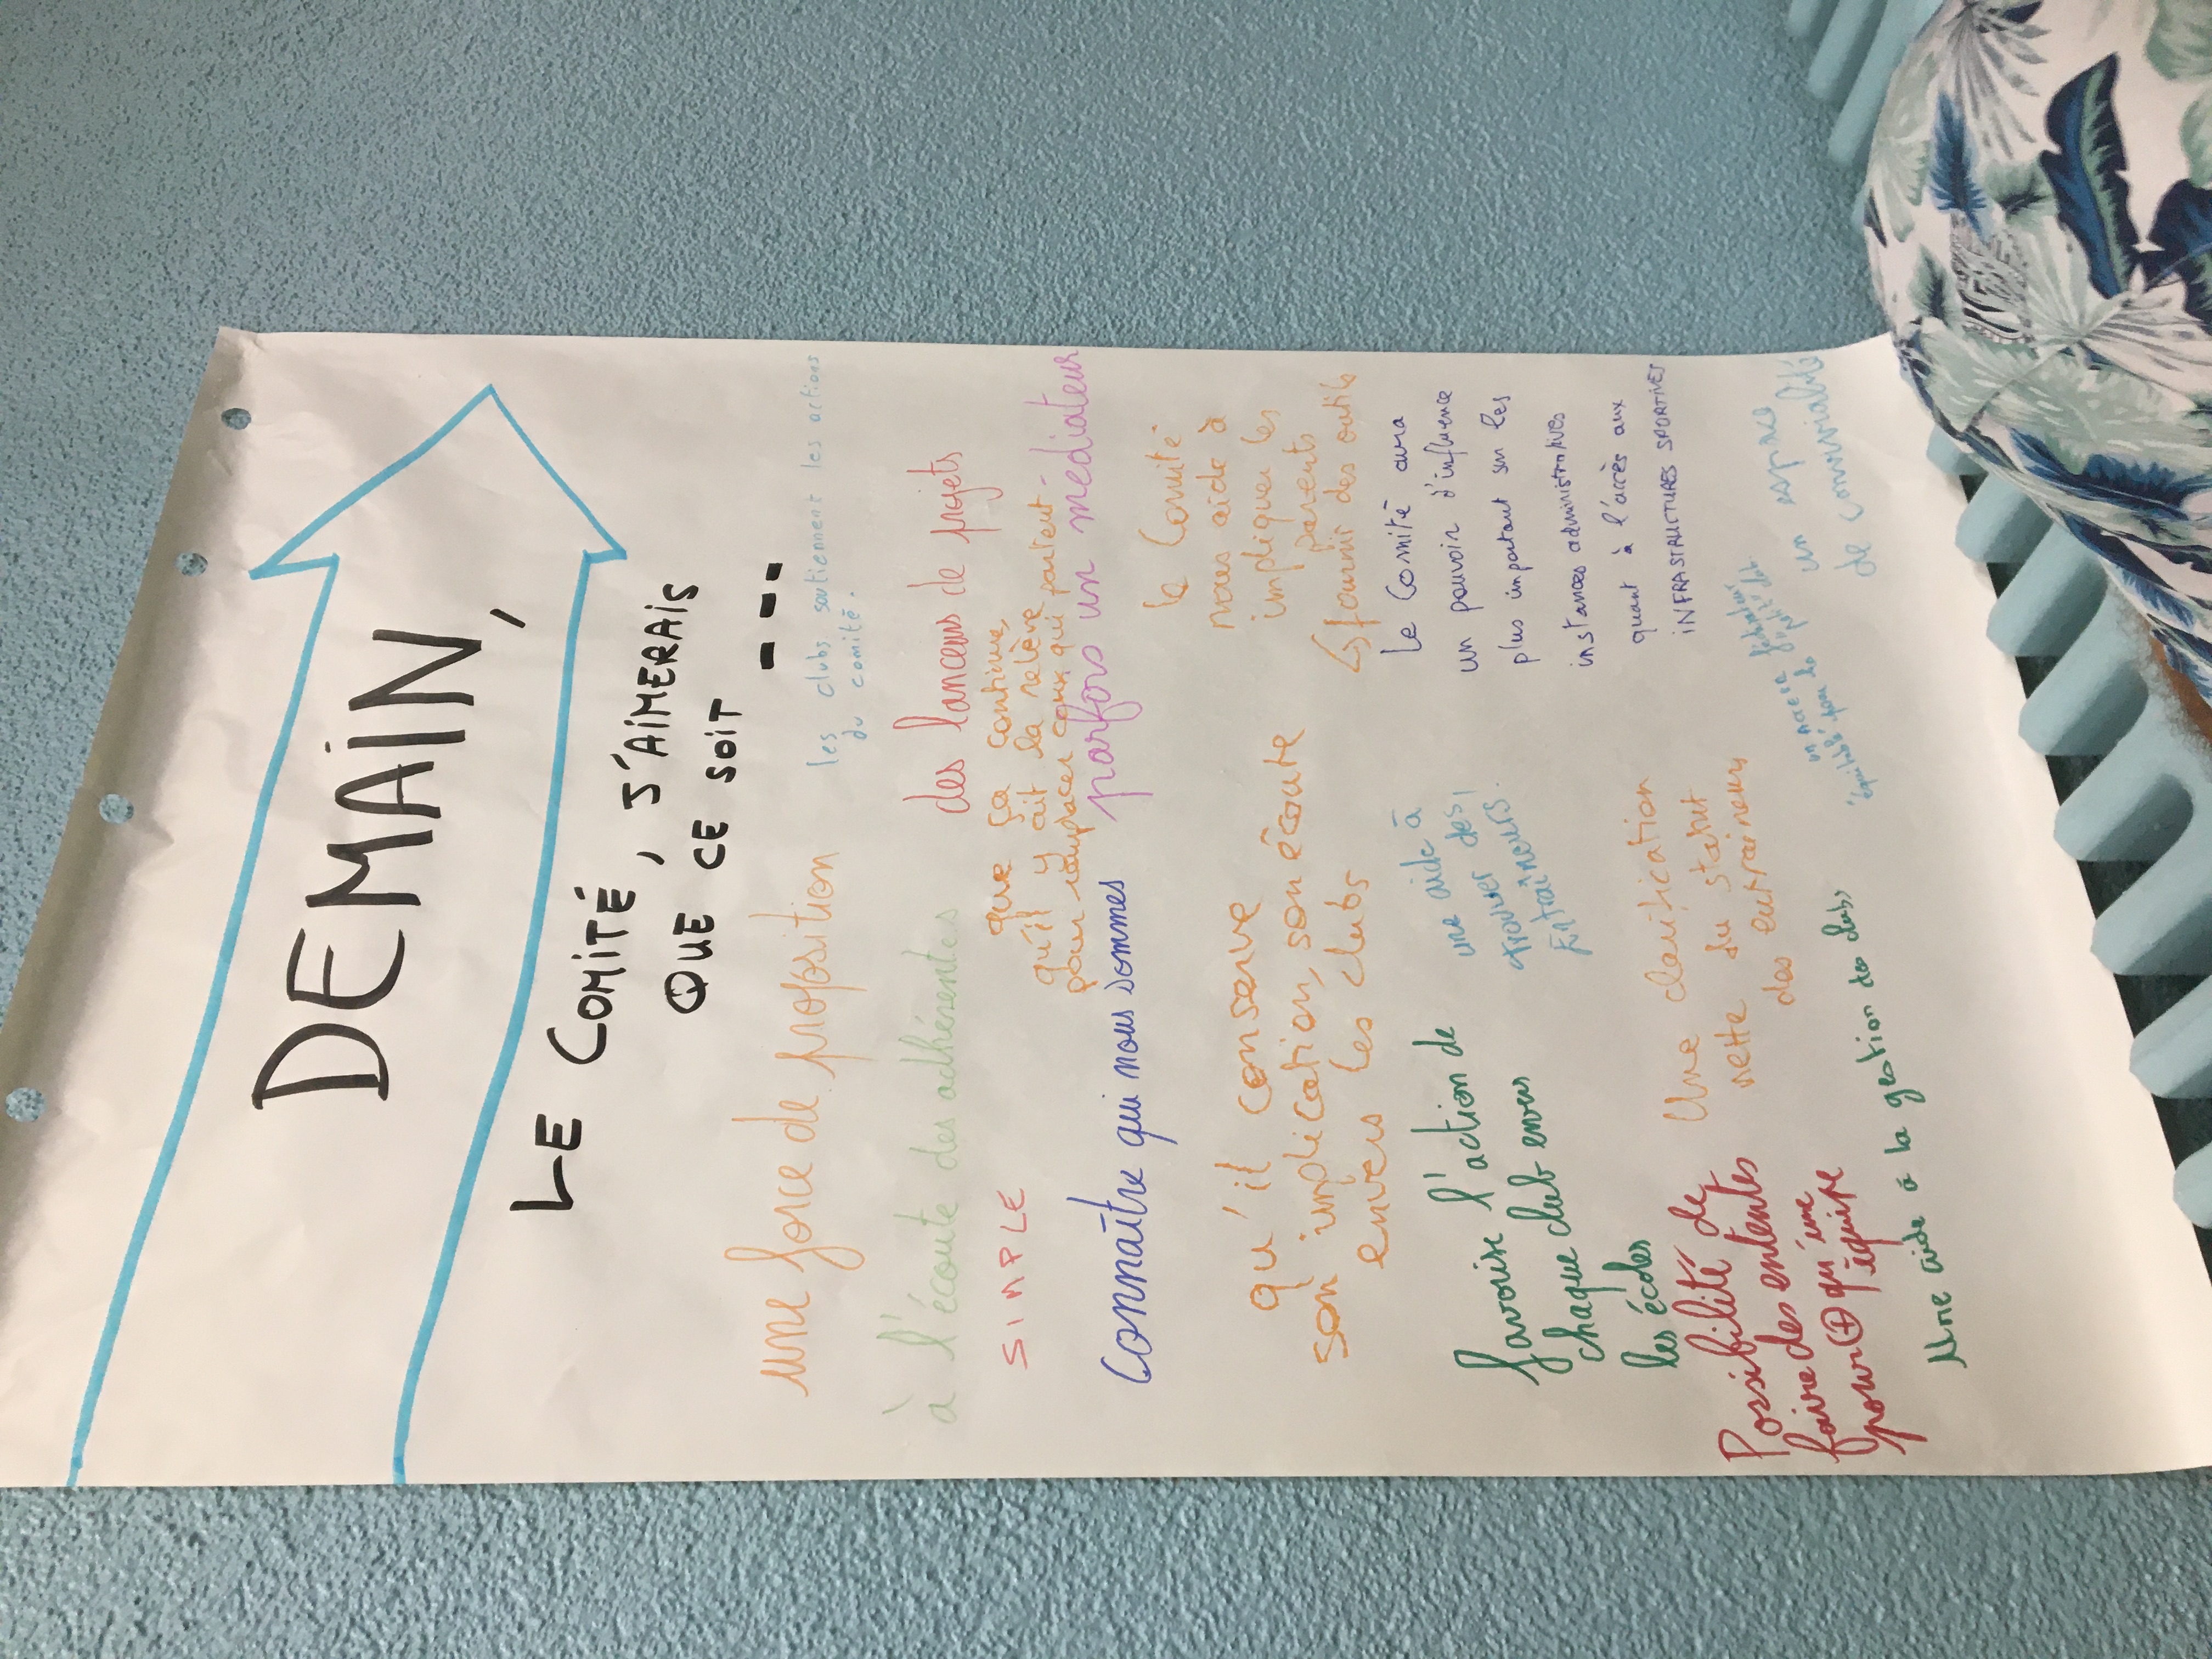 DEMAIN,
LE COMITÉ, J'AIMERAIS
QUE CE SOIT ...
les clubs soutiennent les actions
du comité.
une force de proposition
à l'écoute des adhérentes
des lanceurs de projets
SIMPLE
que ça continue,
qu'il y ait la relève
pour remplacer ceux qui partent.
parfois un médiateur
Connaître qui nous sommes
le Comité
nous aide à
impliquer les
parents
↳ fournir des outils
qu'il conserve
son implication, son écoute
envers les clubs
Le Comité aura
un pouvoir d'influence
plus important sur les
instances administratives
quant à l'accès aux
INFRASTRUCTURES SPORTIVES
une aide à
trouver des
Entraîneurs.
favorise l'action de
chaque club envers
les écoles
Une clarification
nette du statut
des entraineurs
un espace
de convivialité
Possibilité de
faire des ententes
pour ⊕ qu'une
équipe
Une aide à la gestion des clubs